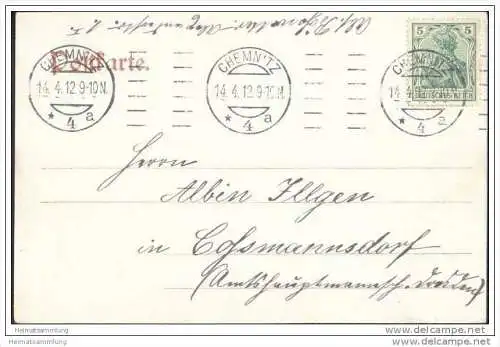 Postkarte.
CHEMNITZ
14. 4. 12 9-10N.
* 4 a
CHEMNITZ
14. 4. 12 9-10N.
* 4 a
CHEMNITZ
14. 4. 12 9-10N.
* 4 a
5 5
DEUTSCHES REICH
Herrn
Albin Illgen
in Coßmannsdorf
(Amtshauptmannsch. Dresden)
Heimatsammlung.de
Heimatsammlung.de
Heimatsammlung.de
Heimatsammlung.de